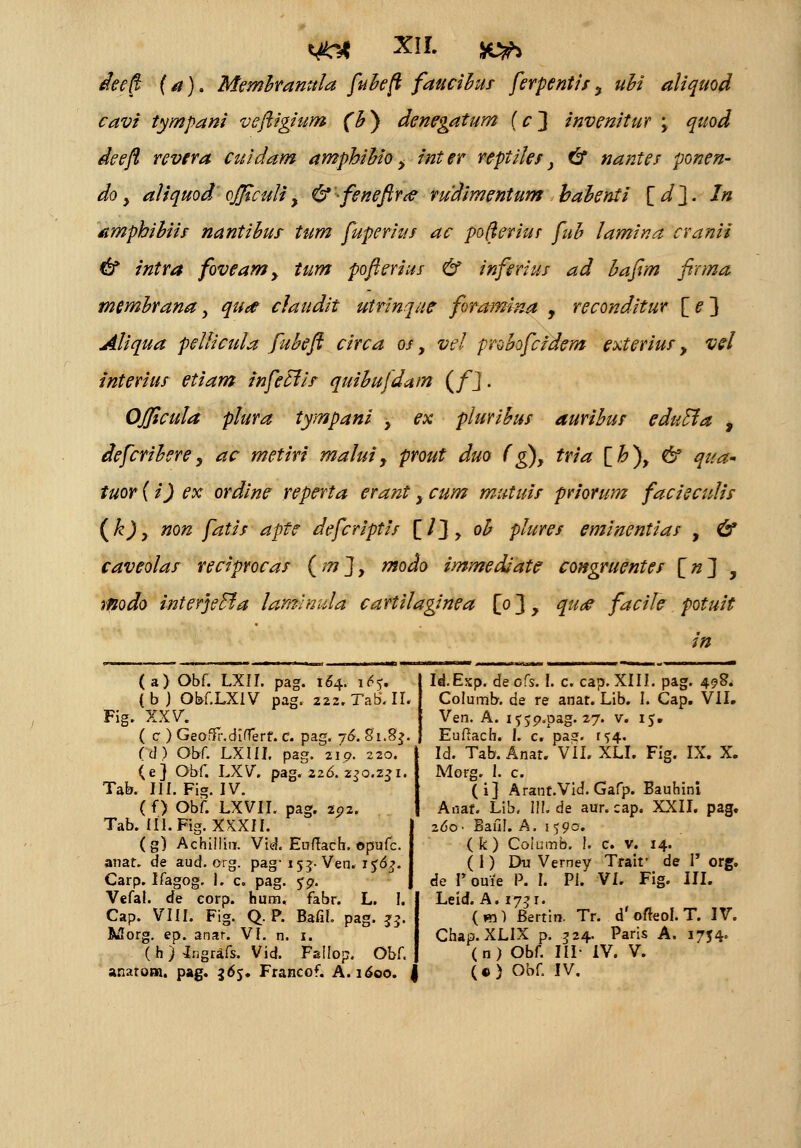 XII.
deeſt (a). Membranula ſubeſt faucibus ſerpentis, ubi aliquod
cavi tympani veſtigium (b) denegatum [c] invenitur; quod
deeſt revera cuidam amphibio, inter reptiles, & nantes ponen-
do, aliquod oſſiculi, & feneſtræ rudimentum habenti [d]. In
amphibiis nantibus tum ſuperius ac poſterius ſub lamina cranii
& intra foveam, tum poſterius & inferius ad baſim firma
membrana, quæ claudit utrinque foramina, reconditur [e]
Aliqua pellicula ſubeſt circa os, vel proboſcidem exterius, vel
interius etiam inſectis quibuſdam (f].
Oſſicula plura tympani, ex pluribus auribus educta,
deſcribere, ac metiri malui, prout duo (g), tria [h), & qua-
tuor (i) ex ordine reperta erant, cum mutuis priorum facieculis
(k), non ſatis apte deſcriptis [l], ob plures eminentias, &
caveolas reciprocas (m], modo immediate congruentes [n],
modo interjecta laminula cartilaginea [o], quæ facile potuit
in
(a) Obſ. LXII. pag. 164. 165.
(b) Obſ.LXIV pag. 222. Tab. II.
Fig. XXV.
(c) Geoffr.diſſert. c. pag. 76. 81.83.
(d) Obſ. LXIII. pag. 219. 220.
(e] Obſ. LXV. pag. 226. 230.231.
Tab. III. Fig. IV.
(f) Obſ. LXVII. pag. 292.
Tab. III. Fig. XXXII.
(g) Achillin. Vid. Euſtach. opuſc.
anat. de aud. org. pag. 153. Ven. 1563.
Carp. Iſagog. l. c. pag. 59.
Veſal. de corp. hum. fabr. L. I.
Cap. VIII. Fig. Q. P. Baſil. pag. 33.
Morg. ep. anat. VI. n. 1.
(h) Ingraſs. Vid. Fallop. Obſ.
anatom. pag. 365. Francof. A. 1600.
Id. Exp. de oſs. l. c. cap. XIII. pag. 498.
Columb. de re anat. Lib. I. Cap. VII.
Ven. A. 1559.pag. 27. v. 15.
Euſtach. l. c. pag. 154.
Id. Tab. Anat. VII. XLI. Fig. IX. X.
Morg. l. c.
(i] Arant.Vid. Gaſp. Bauhini
Anat. Lib. III. de aur. cap. XXII. pag.
260. Baſil. A. 1590.
(k) Columb. l. c. v. 14.
(l) Du Verney Trait' de l' org.
de l' ouïe P. I. Pl. VI. Fig. III.
Leid. A. 1731.
(m) Bertin. Tr. d' oſteol. T. IV.
Chap. XLIX p. 324. Paris A. 1754.
(n) Obſ. III. IV. V.
(o) Obſ. IV.